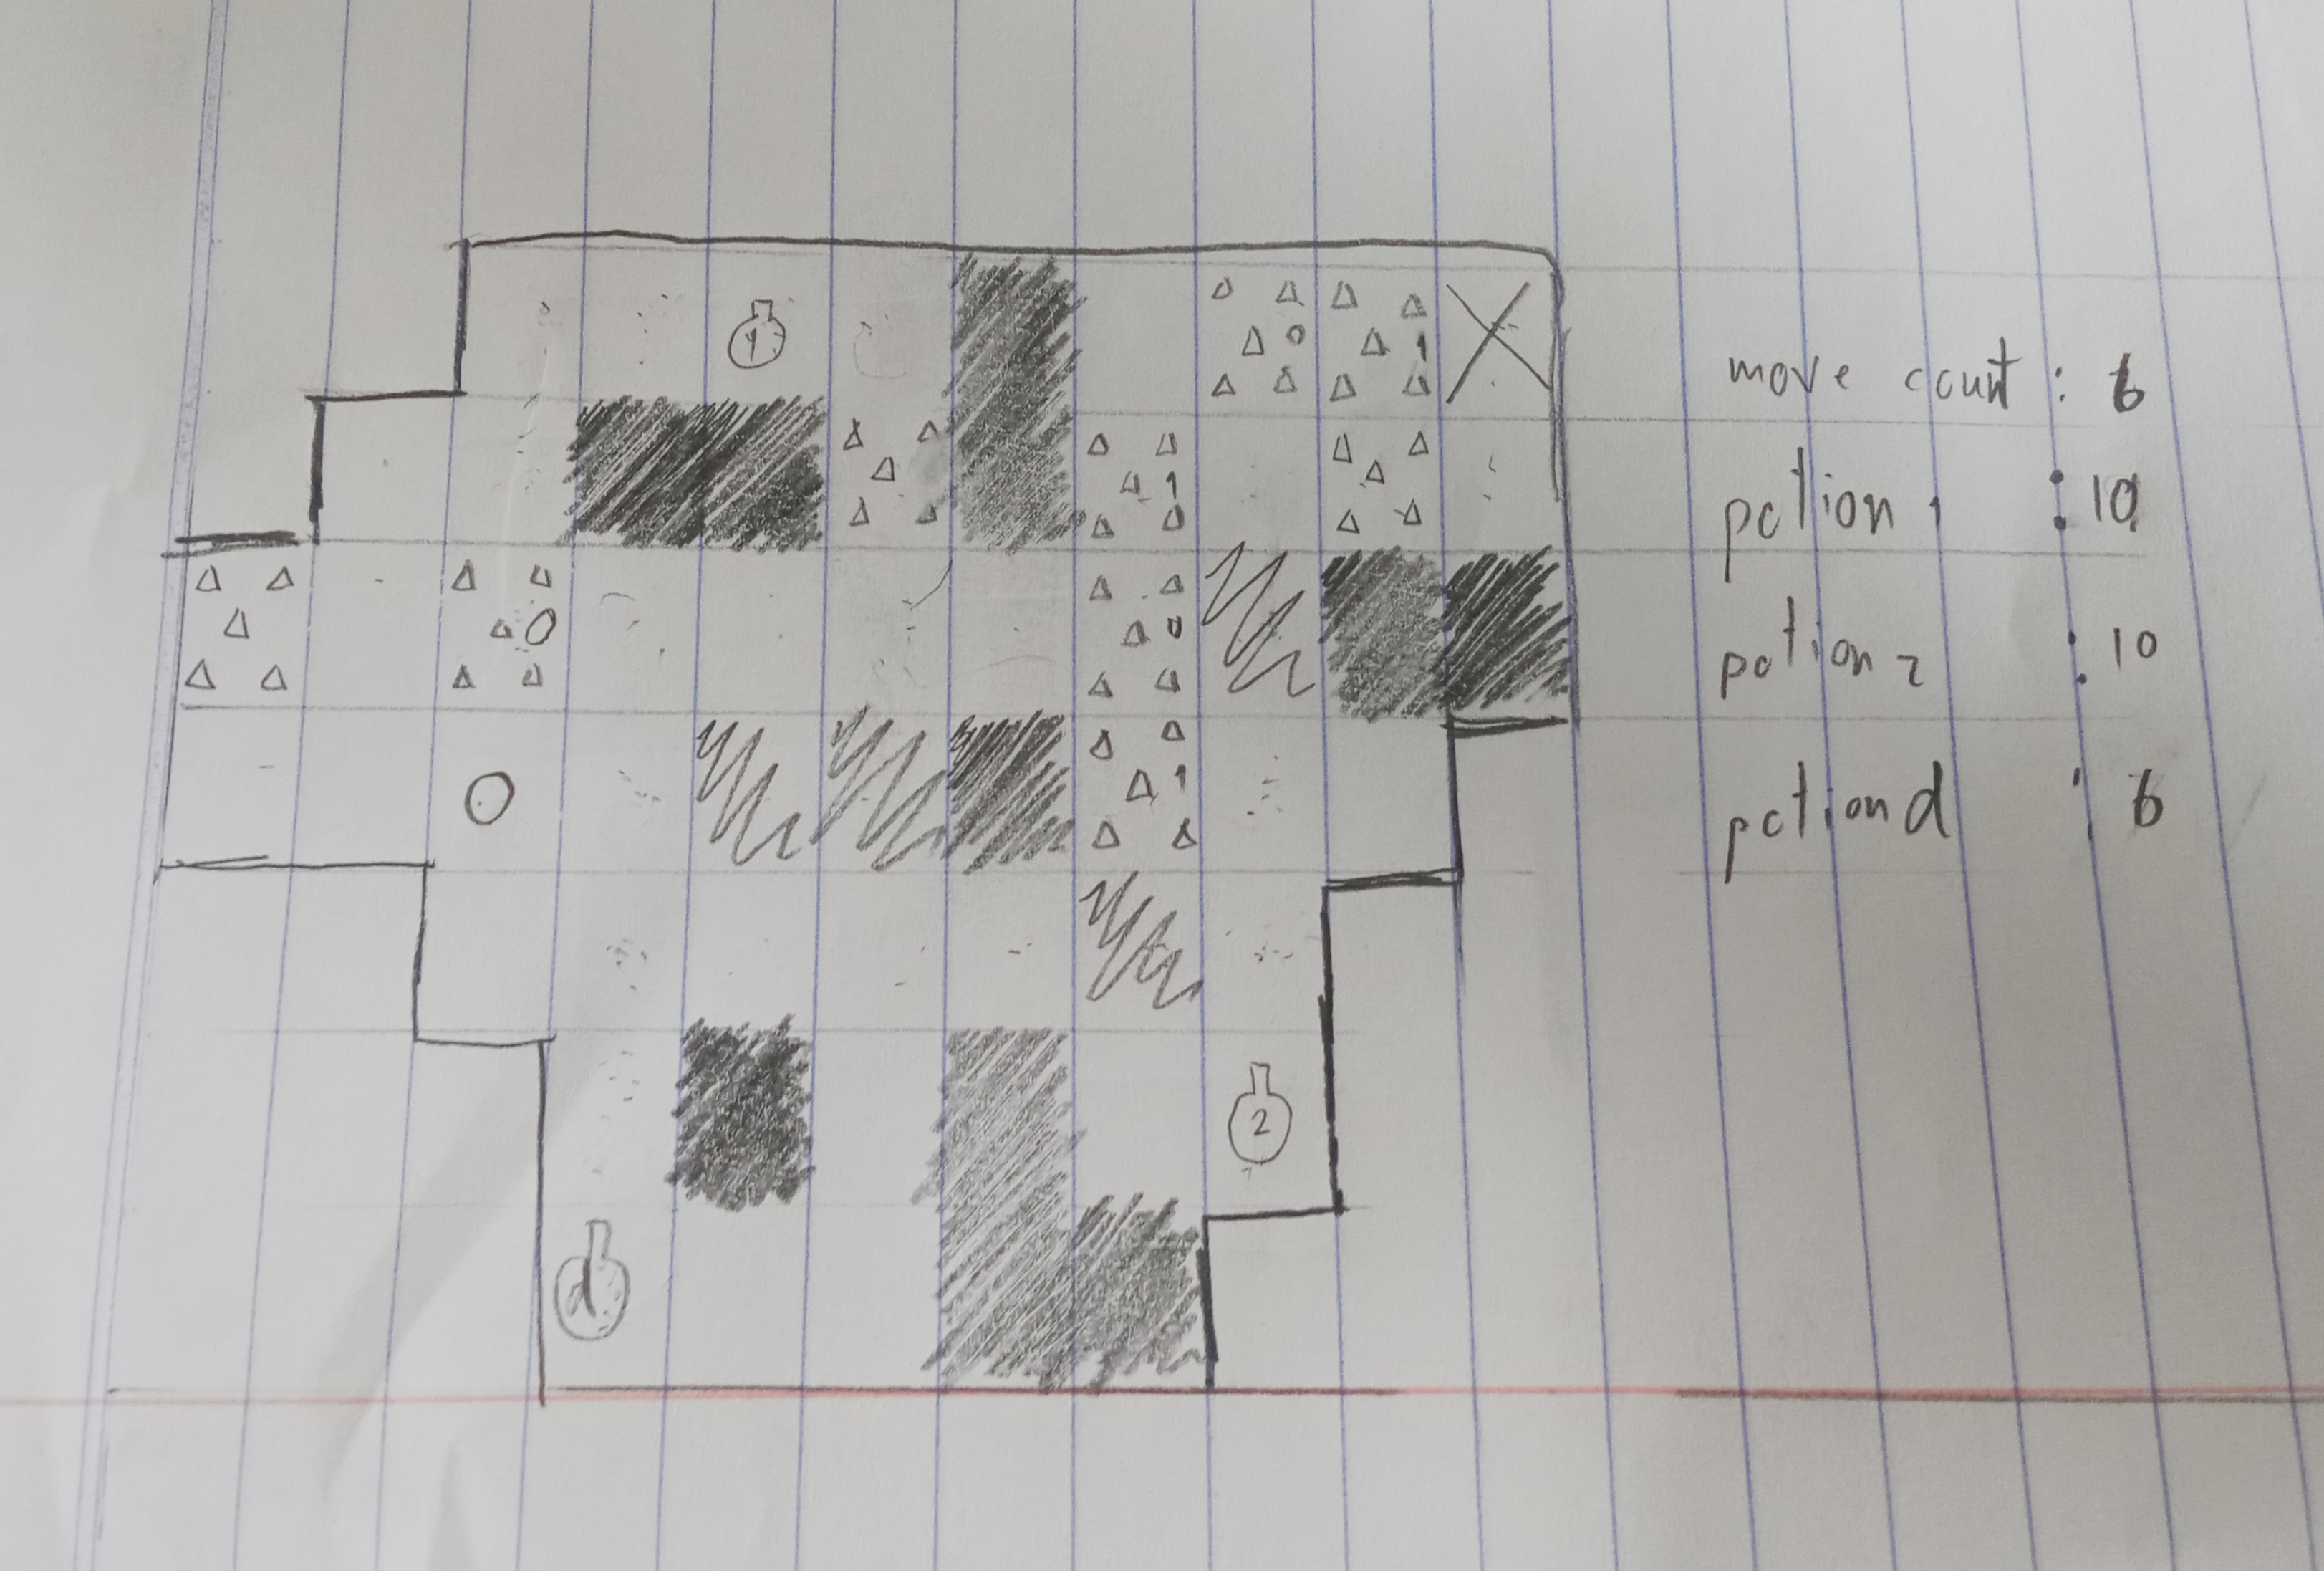 1 0 1 X
1
0 0
O 1
2
d
move count : 6
potion 1 : 10
potion 2 : 10
potion d : 6